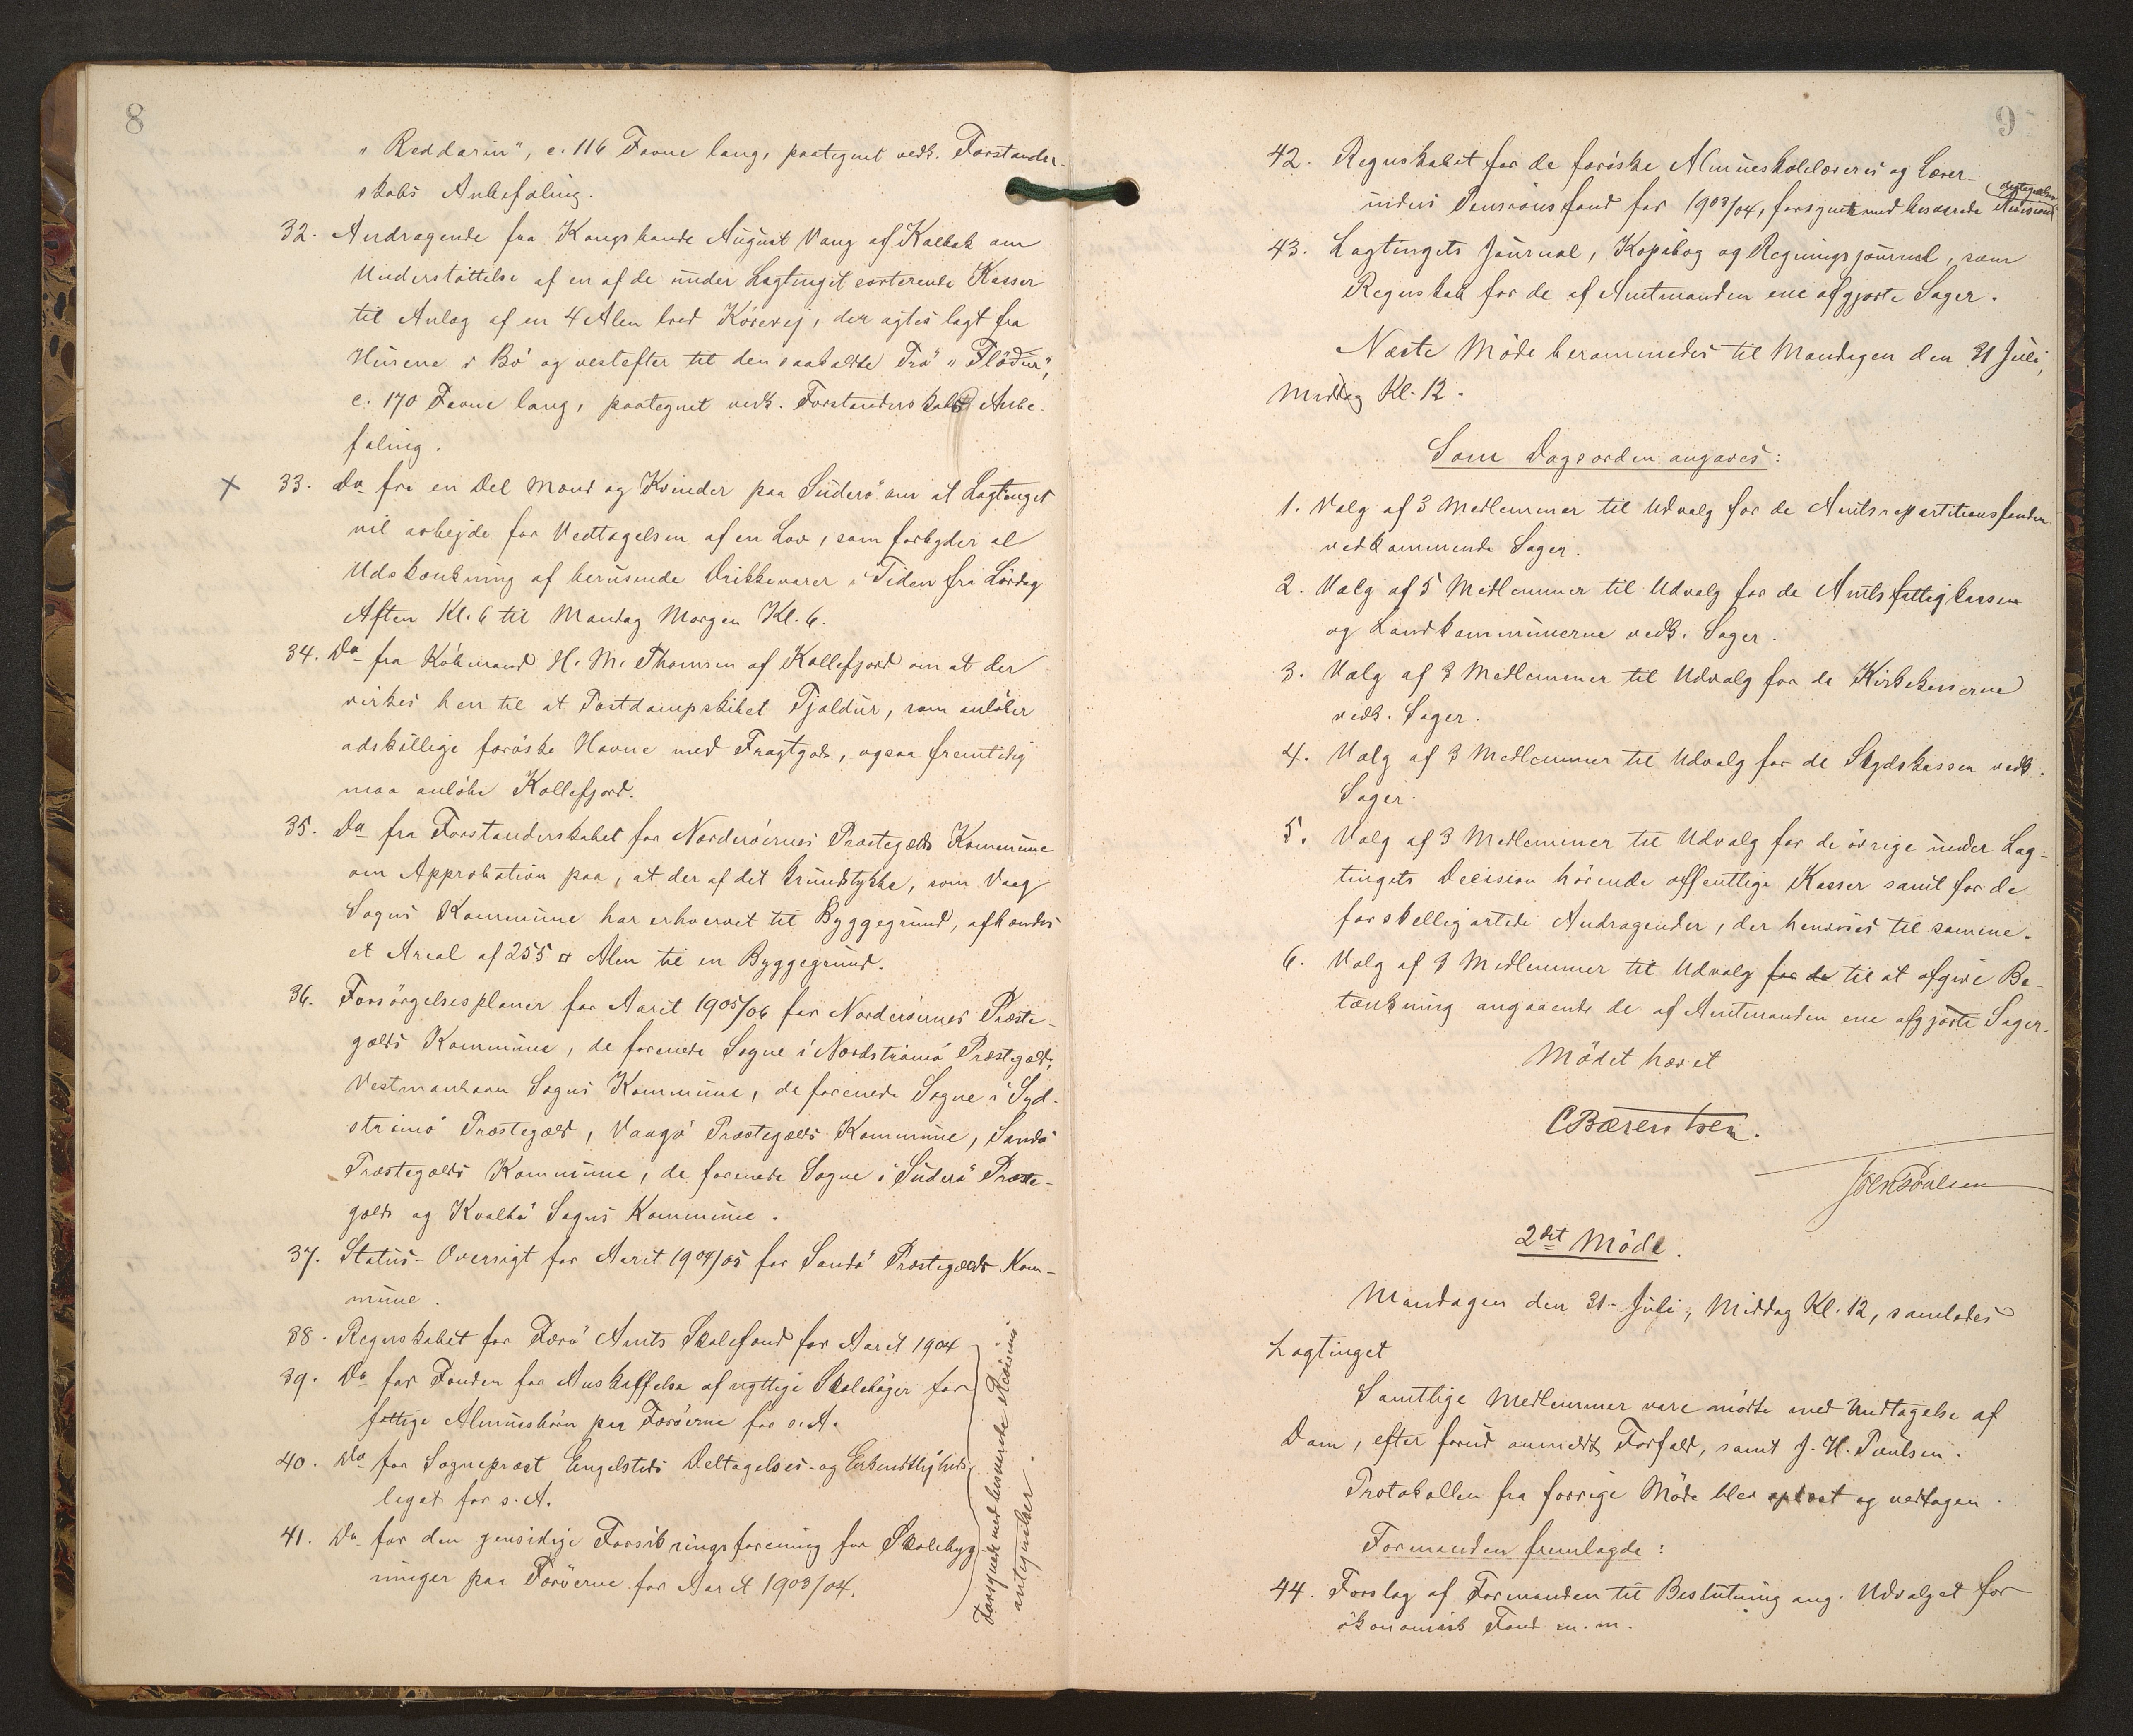 8
"Reddarin", c. 116 Favne lang, paategnet vedk. Forstander-
skabs Anbefaling.
32. Andragende fra Kongsbonde August Vang af Kalbak om
Understøttelse af en af de under Lagtinget sorterende Kasser
til Anlæg af en 4 Alen bred Kørevej, der agtes lagt fra
Husene i Bø og vestefter til den saakaldte Trø "Fløðin",
c. 170 Favne lang, paategnet vedk. Forstanderskabs Anbe-
faling.
33. Do fra en Del Mænd og Kvinder paa Suderø om at Lagtinget
vil arbejde for Vedtagelsen af en Lov, som forbyder al
Udskænkning af berusende Drikkevarer i Tiden fra Lørdag
Aften Kl. 6 til Mandag Morgen Kl. 6.
34. Do fra Købmand H. M. Thomsen af Kollefjord om at der
virkes hen til at Postdampskibet Tjaldur, som anløber
adskillige færøske Havne med Fragtgods, ogsaa fremtidig
maa anløbe Kollefjord.
35. Do fra Forstanderskabet for Norderøernes Præstegælds Kommune
om Approbation paa, at der af det Grundstykke, som Vaag
Sogns Kommune har erhvervet til Byggegrund, afhændes
et Areal af 255 □ Alen til en Byggegrund.
36. Forsørgelsesplaner for Aaret 1905/06 for Norderøernes Præste-
gælds Kommune, de forenede Sogne i Nordstrømø Præstegæld,
Vestmanhavn Sogns Kommune, de forenede Sogne i Syd-
strømø Præstegæld, Vaagø Præstegælds Kommune, Sandø
Præstegælds Kommune, de forenede Sogne i Suderø Præste-
gæld og Kvalbø Sogns Kommune.
37. Status-Oversigt for Aaret 1904/05 for Sandø Præstegælds Kom-
mune.
38. Regnskabet for Færø Amts Skolefond for Aaret 1904
39. Do for Fonden for Anskaffelse af nyttige Skolebøger for
fattige Almuesbørn paa Færøerne for s. A.
40. Do for Sognepræst Engelsteds Deltagelses- og Erkendtligheds-
legat for s. A.
41. Do for den gensidige Forsikringsforening for Skolebyg-
ninger paa Færøerne for Aaret 1903/04.
Forsynet med besvarede Revisions
antegnelser.
9
42. Regnskabet for de færøske Almueskolelæreres og Lærer-
inders Pensionsfond for 1903/04, forsynet med besvarede Revisions
antegnelser
43. Lagtingets Journal, Kopibog og Regningsjournal, som
Regnskab for de af Amtmanden ene afgjorte Sager.
Næste Møde berammedes til Mandagen den 31 Juli,
Middag Kl. 12.
Som Dagsorden angaves:
1. Valg af 3 Medlemmer til Udvalg for de Amtsrepartitionsfonden
vedkommende Sager.
2. Valg af 5 Medlemmer til Udvalg for de Amtsfattigkassen
og Landkommunerne vedk. Sager.
3. Valg af 3 Medlemmer til Udvalg for de Kirkekasserne
vedk. Sager.
4. Valg af 3 Medlemmer til Udvalg for de Skydskassen vedk.
Sager.
5. Valg af 3 Medlemmer til Udvalg for de øvrige under Lag-
tingets Decision hørende offentlige Kasser samt for de
forskelligartede Andragender, der henvises til samme.
6. Valg af 3 Medlemmer til Udvalg for de til at afgive Be-
tænkning angaaende de af Amtmanden ene afgjorte Sager.
Mødet hævet
CBærentsen.
2det Møde.
Mandagen den 31. Juli, Middag Kl. 12, samledes
Lagtinget
Samtlige Medlemmer vare mødte med Undtagelse af
Dam, efter forud anmeldt Forfald, samt J. H. Poulsen.
Protokollen fra forrige Møde blev oplæst og vedtagen.
Formanden fremlagde:
44. Forslag af Formanden til Beslutning ang. Udvalget for
økonomisk Fond m. m.